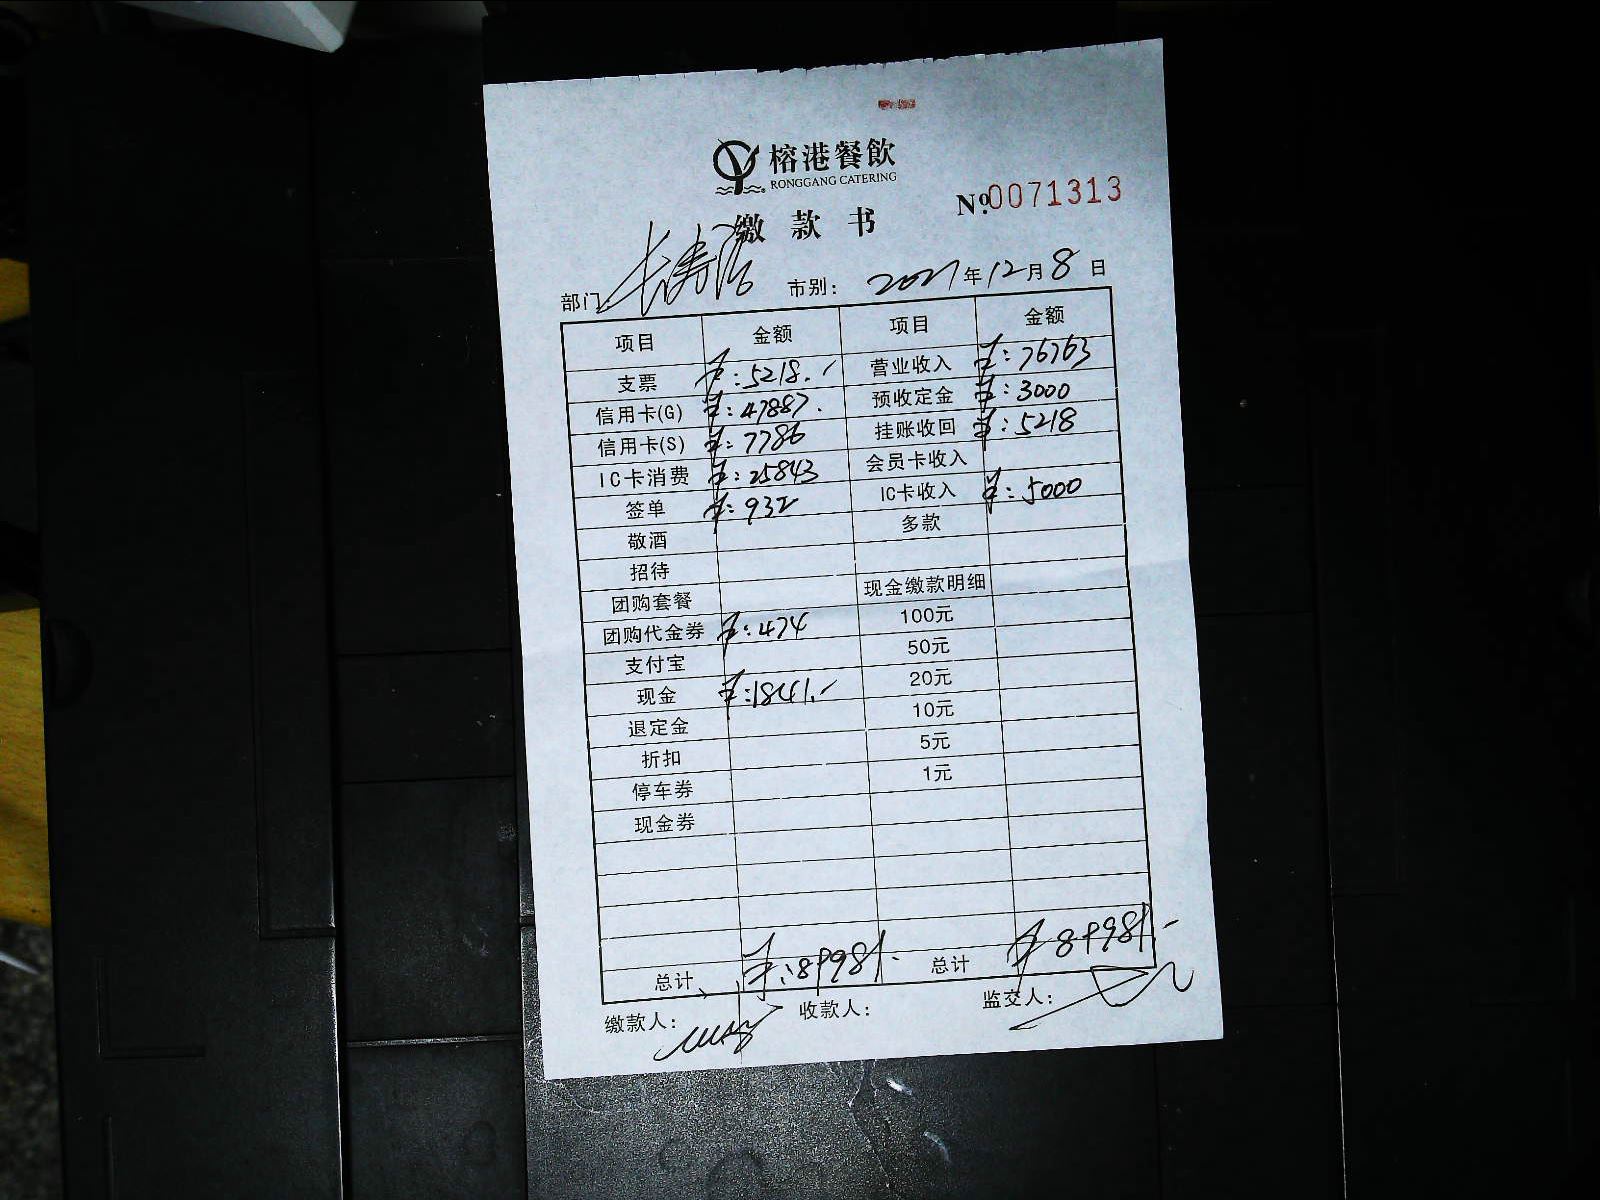 榕港餐飲
RONGGANG CATERING
No.0071313
缴款书
部门: 市别: 2021年12月8日
项目 金额 项目 金额
支票 ¥:5218.- 营业收入 ¥:76763
信用卡(G) ¥:47887. 预收定金 ¥:3000
信用卡(S) ¥:7786 挂账收回 ¥:5218
IC卡消费 ¥:25843 会员卡收入
签单 ¥:932 IC卡收入 ¥:5000
敬酒 多款
招待
团购套餐 现金缴款明细
团购代金券 ¥:474 100元
支付宝 50元
现金 ¥:1841.- 20元
退定金 10元
折扣 5元
停车券 1元
现金券
总计 ¥:89981.- 总计 ¥89981.-
缴款人: 收款人: 监交人: